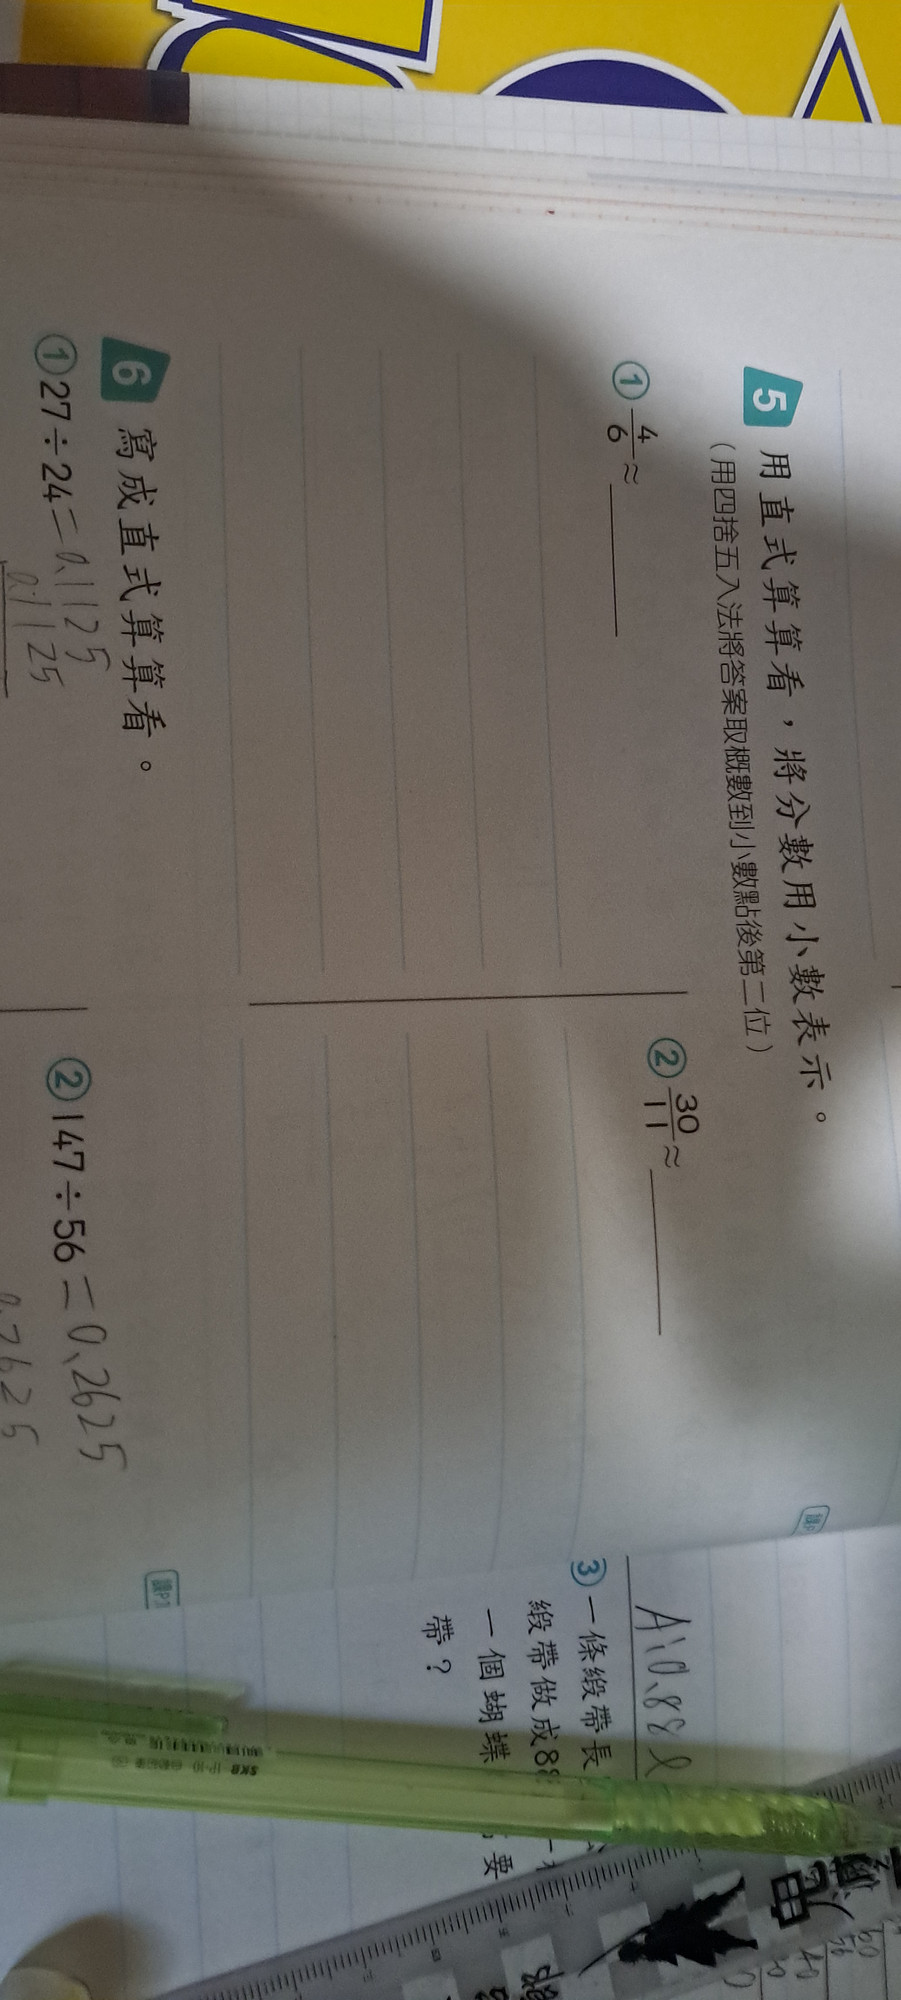 5 用直式算算看，將分數用小數表示。
（用四捨五入法將答案取概數到小數點後第二位）
① 4/6 ≈ ______
② 30/11 ≈ ______
6 寫成直式算算看。
① 27÷24=0.1125
0.1125
② 147÷56=0.2625
0.2625
A:0.88l
③ 一條緞帶長
緞帶做成88
一個蝴蝶
要
帶？
SKB IP-10